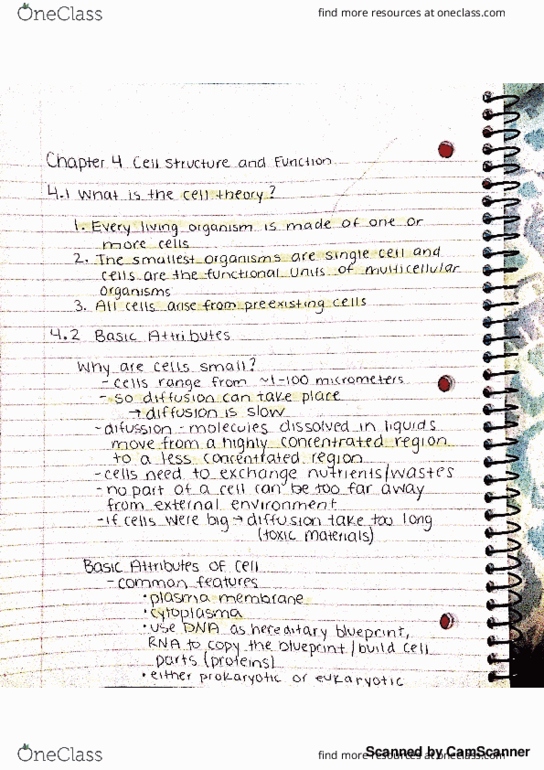 OneClass
find more resources at oneclass.com
Chapter 4 Cell Structure and Function
4.1 What is the cell theory?
1. Every living organism is made of one or
more cells
2. The smallest organisms are single cell and
cells are the functional units of multicellular
organisms
3. All cells arise from preexisting cells
4.2 Basic Attributes
Why are cells small?
- cells range from ~1-100 micrometers
- so diffusion can take place
→ diffusion is slow
- difussion - molecules dissolved in liquids
move from a highly concentrated region
to a less concentrated region
- cells need to exchange nutrients/wastes
- no part of a cell can be too far away
from external environment
- if cells were big → diffusion take too long
(toxic materials)
Basic Attributes of cell
- common features
• plasma membrane
• cytoplasma
• use DNA as hereditary blueprint,
RNA to copy the blueprint / build cell
parts (proteins)
• either prokaryotic or eukaryotic
OneClass
find more resources at oneclass.com
Scanned by CamScanner